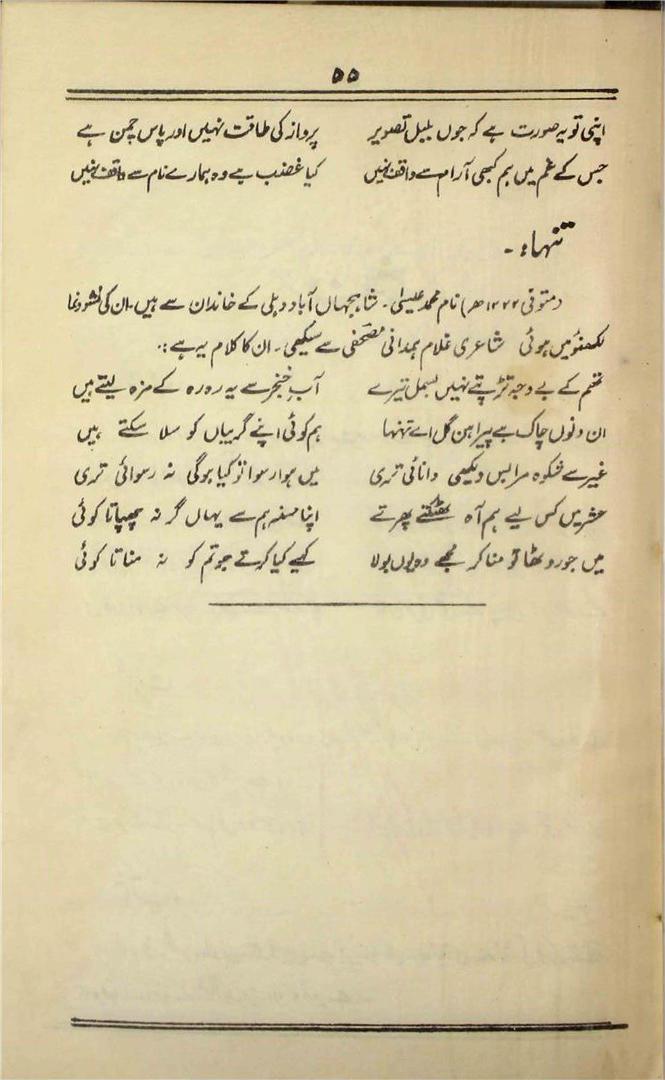 ۵۵
اپنی تو یہ صورت ہے کہ جوں بلبل تصویر پرواز کی طاقت نہیں اور پاس چمن ہے
جس کے غم میں ہم کبھی آرام سے واقف نہیں کیا غضب ہے وہ ہمارے نام سے واقف نہیں
تنہا:۔
(متوفی ۱۲۲۴ھ) نام محمد عیسیٰ۔ شاہجہاں آباد دہلی کے خاندان سے ہیں۔ ان کی نشو ونما
لکھنؤ میں ہوئی شاعری غلام ہمدانی مصحفی سے سیکھی۔ ان کا کلام یہ ہے:۔
کے بے وجہ تڑپتے نہیں بسمل تیرے آبِ خنجر سے یہ رہ رہ کے مزہ لیتے ہیں
ان دنوں چاک ہے پیراہن گل اے تنہا ہم کوئی اپنے گریباں کو سلا سکتے ہیں
غیر سے شکوہ مرا بس دیکھی دانائی تری میں ہوا رسوا تو کیا ہوگی نہ رسوائی تری
حشر میں کس لیے ہم آہ بھٹکتے پھرتے اپنا منہ ہم سے یہاں گر نہ چھپاتا کوئی
میں جو روٹھا تو منا کر مجھے وہ یوں بولا کہیے کیا کرتے جو تم کو نہ مناتا کوئی